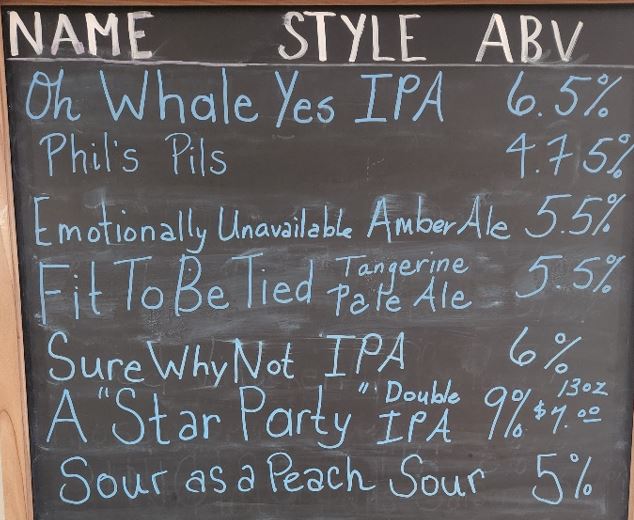 NAME STYLE ABV
Oh Whale Yes IPA 6.5%
Phil's Pils 4.75%
Emotionally Unavailable Amber Ale 5.5%
Fit To Be Tied Tangerine Pale Ale 5.5%
Sure Why Not IPA 6%
A "Star Party" Double IPA 9% 13oz $7.00
Sour as a Peach Sour 5%